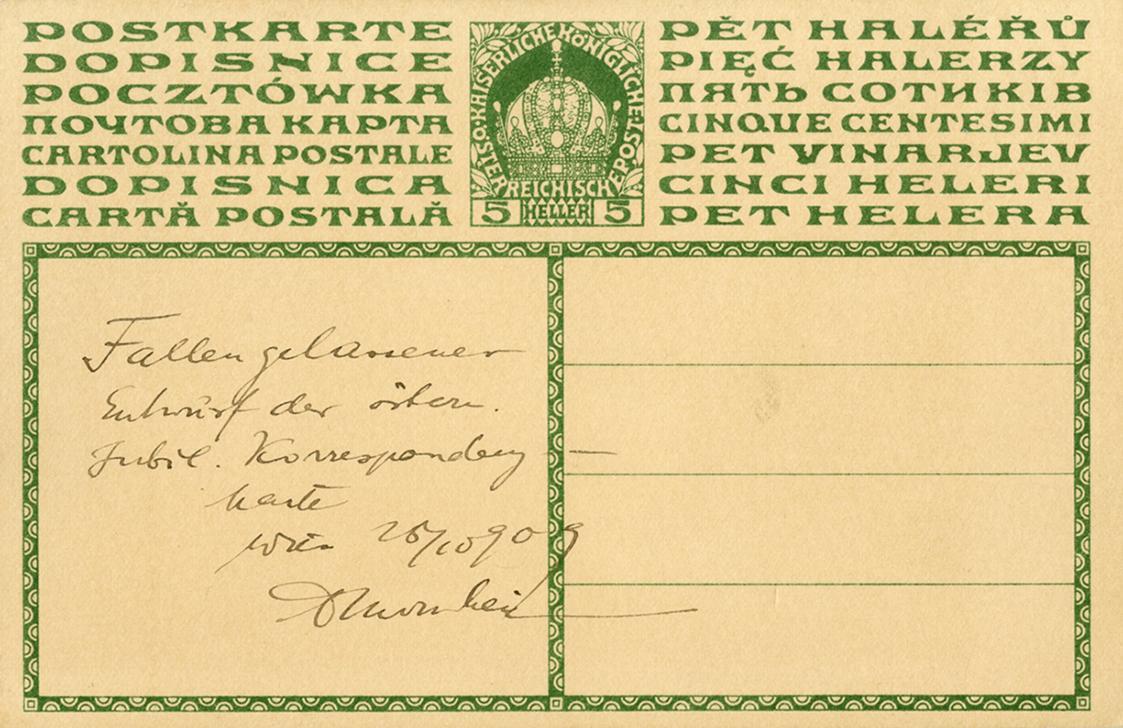 POSTKARTE
DOPISNICE
POCZTÓWKA
ПОЧТОВА КАРТА
CARTOLINA POSTALE
DOPISNICA
CARTĂ POSTALĂ
KAISERLICHE KÖNIGLICHE ÖSTERREICHISCHE POST
5 HELLER 5
PĚT HALÉŘŮ
PIĘĆ HALERZY
ПЯТЬ СОТИКІВ
CINQUE CENTESIMI
PET VINARJEV
CINCI HELERI
PET HELERA
Fallen gelassener
Entwurf der österr.
Jubil. Korrespondenz-
karte
Wien 25/10 909